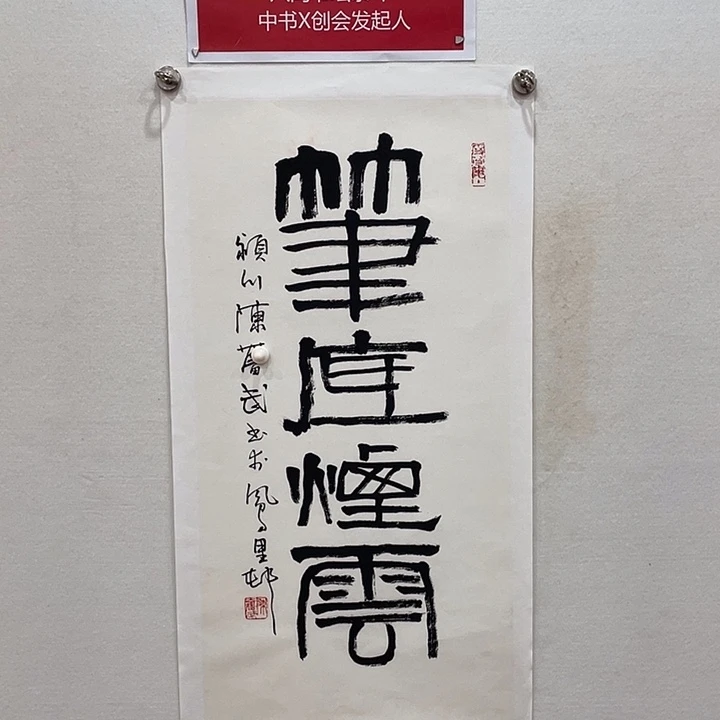 中书X创会发起人
筆底煙雲
潁川陳武書於鳳里邨